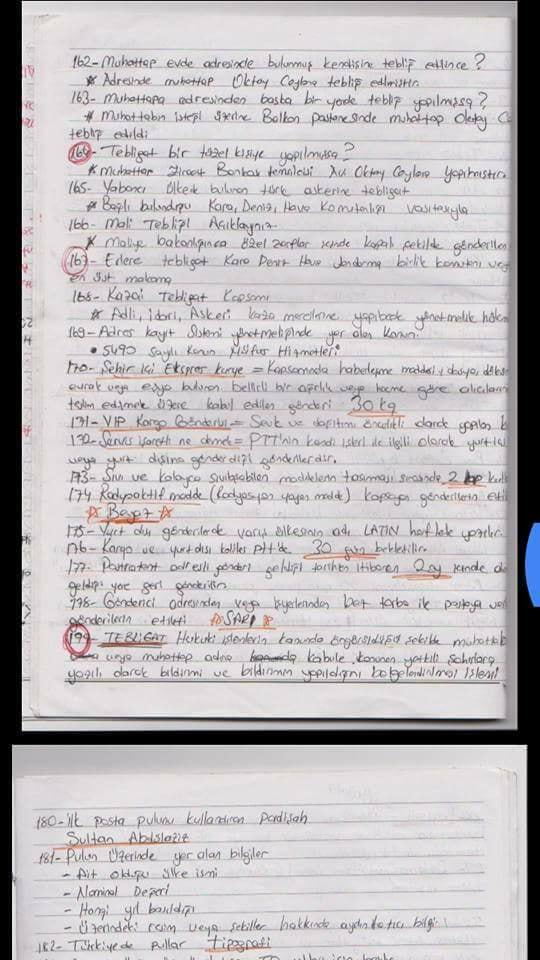 162- Muhattap evde adresinde bulunmuş kendisine tebliğ edilince?
* Adresinde muhattap Oktay Ceylana tebliğ edilmiştir.
163- Muhattapa adresinden başka bir yerde tebliğ yapılmışsa?
* Muhattabın isteği üzerine Balkan pastanesinde muhattap Oktay C
tebliğ edildi
164- Tebligat bir tüzel kişiye yapılmışsa?
* Muhattap Ziraat Bankası temsilcisi Av Oktay Ceylana yapılmıştır.
165- Yabancı ülkede bulunan türk askerine tebligat
* Bağlı bulunduğu Kara, Deniz, Hava Komutanlığı vasıtasıyla
166- Mali Tebliği Açıklayınız
* Maliye bakanlığınca özel zarflar içinde kapalı şekilde gönderilen
167- Erlere tebligat Kara Deniz Hava Jandarma birlik komutanı veya
en üst makama
168- Kazai Tebligat Kapsamı
* Adli, idari, Askeri kaza mercilerine yapılacak yönetmelik
169- Adres kayıt Sistemi yönetmeliğinde yer alan Kanun
• 5490 Sayılı Kanun Nüfus Hizmetleri
170- Şehir içi Ekspres kurye = Kapsamında haberleşme maddesi, dosya,
evrak veya eşya bulunan belirli bir ağırlık veya hacme göre alıcılarına
teslim edilmek üzere kabul edilen gönderi 30 kg
171- VIP Kargo Gönderisi = Sevk ve dağıtımı öncelikli olarak yapılan k
172- Servis işareti ne demek = PTT'nin kendi işleri ile ilgili olarak yurt içi
veya yurt dışına gönderdiği gönderilerdir.
173- Sıvı ve kolayca sıvılaşabilen maddelerin taşınması sırasında 2 kap
174 Radyoaktif madde (Radyasyon yayan madde) kapsayan gönderilerin eti
* Beyaz *
175- Yurt dışı gönderilerde varış ülkesinin adı LATİN harflerle yazılır.
176- Kargo ve yurtdışı koliler PTT'de 30 gün bekletilir
177- Postrestant adresli gönderi geldiği tarihten itibaren 2 ay içinde
geldiği yere geri gönderilir.
178- Gönderici adresinden veya işyerlerinden bez torba ile postaya ve
gönderilerin etiketi * SARI *
179- TEBLİGAT Hukuki işlemlerin kanunda öngörüldüğü şekilde muhattab
veya muhattap adına kabule kanunen yetkili şahıslara
yazılı olarak bildirimi ve bildirimin yapıldığını belgelendirilmesi işlemi
180- ilk posta pulunu kullandıran Padişah
Sultan Abdülaziz
181- Pulun Üzerinde yer alan bilgiler
- Ait olduğu ülke ismi
- Nominal Değeri
- Hangi yıl basıldığı
- Üzerindeki resim veya şekiller hakkında aydınlatıcı bilgi
182- Türkiyede pullar tipografi